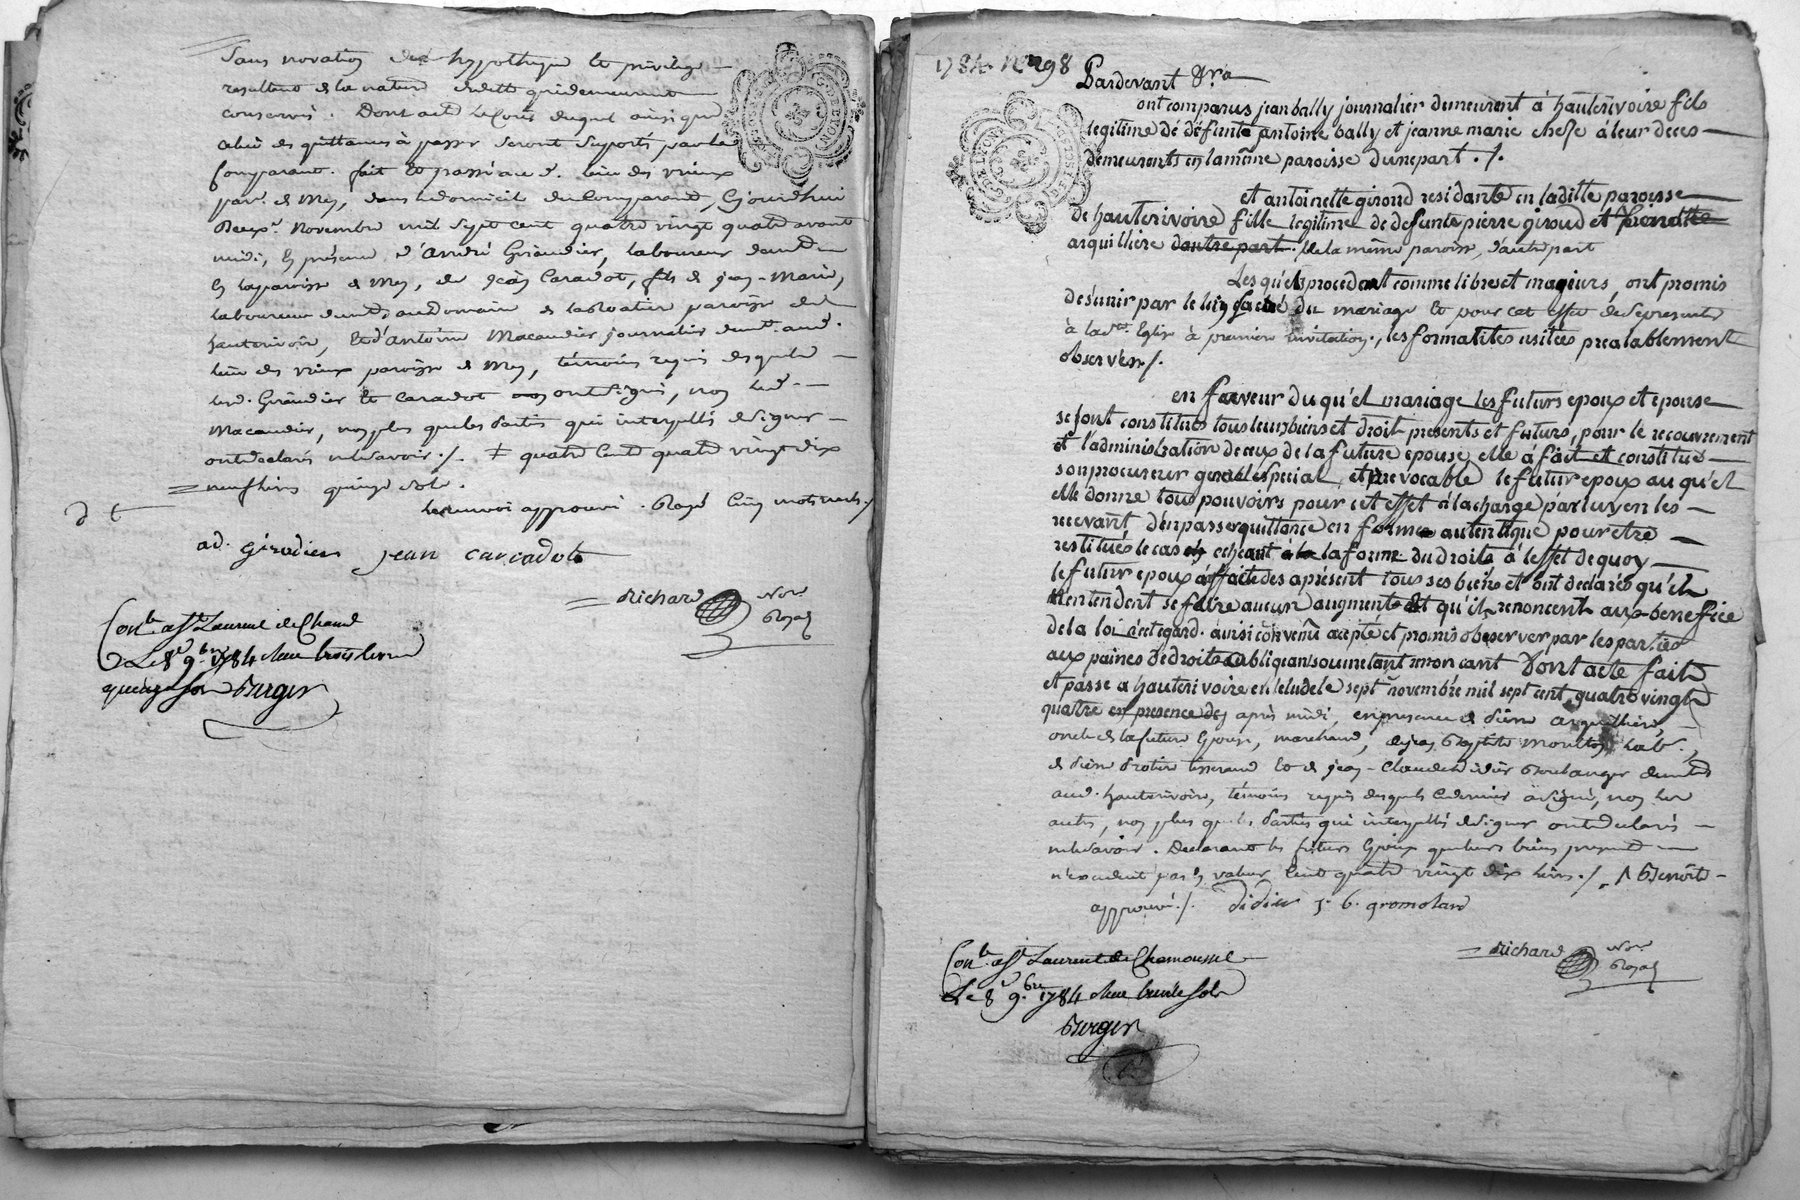 Sans novation des hypotheque et privilege
resultant de la nature dudit qui demeurent
conservés. Dont acte le cout duquel ainsi que
celui des quittances à passer seront suportés par le
Comparant. fait et passé au d. lieu des vieux
par. de Mey, dans le domicile du Comparant, Cejourdhui
Novembre mil sept cent quatre vingt quatre avant
midi, En présence d'André Giraudier, laboureur demt en
la paroisse de Mey, de jean Caradot, fils de jean-Marie,
laboureur demt au domaine de paroisse de
hauterivoire, Et d'antoine Macaudier journalier demt aud.
lieu des vieux paroisse de Mey, témoins requis desquels
led. Giraudier et Caradot ont signé, non led.
Macaudier, non plus que les Parties qui interpellés de signer
ont declaré ne le savoir ./. ‡ quatre cent quatre vingt dix
neuf livres quinze sols.
le renvoi approuvé. Rayé Cinq mots nuls ./.
ad. girodier jean caradot
Richard Nore Royal
Conlé à St Laurent de Cham
Le 8e 9bre 1784 Reçu trois livres
quinze sols Berger
1784 No 298
Pardevant &ra
ont comparus jean bally journalier demeurent à hauterivoire fils
legitime dé défunts antoine bally et jeanne marie à leur deces
demeurents en la même paroisse d'une part ./.
et antoinette giroud residante en laditte paroisse
de hauterivoire fille legitime de defunts pierre giroud et pierrette
arquilliere dautre part. de la même paroisse, d'autre part
Lesquels procedant comme libres et mageurs, ont promis
de s'unir par le lien sacré du mariage et pour cet effet de se presenter
à la de. Eglise à premiere invitation, les formalites usitées prealablement
observées ./.
en faveur du qu'el mariage les futurs epoux et epouse
se sont constitués tous leurs biens et droit presents et futurs, pour le recouvrement
et l'administration de ceux de la future epouse, elle à fait et constitué
son procureur gnral especial, et irrevocable le futur epoux au qu'el
elle donne tous pouvoirs pour cet effet à la charge par luy en les
recevant d'en passer quittance en forme autentique pour etre
restitués le cas echeant à la la forme du droit à l'effet de quoy
le futur epoux affecte des apresent tous ses biens et ont declarés qu'ils
n'entendent se faire aucun augment et qu'ils renoncent aux benefice
de la loi à cet egard. ainsi convenu accepté et promis observer par les parties
aux paines de droits obligeant soumetant renoncant Dont acte fait
et passé a hauterivoire en letude le sept novembre mil sept cent quatre vingt
quatre en presence des après midi, en presence de Pierre arquilliere,
oncle de la future Epouse, marchand, de jean Baptiste lab.,
de Pierre tisserand et de jean-Claude didier Boulanger demts
aud. hauterivoire, témoins requis desquels ce dernier à signé, non les
autres, non plus que les Parties qui interpellés de signer ont declaré
ne le savoir. Declarant les futurs Epoux que leurs biens present
n'excedent pas en valeur Cent quatre vingt dix livres ./. ʌ Benoite
approuvé ./. didier j. b. gromolard
Richard Nore Royal
Conlé à St Laurent de Chamousset
Le 8e 9bre 1784 Reçu trente sols
Berger